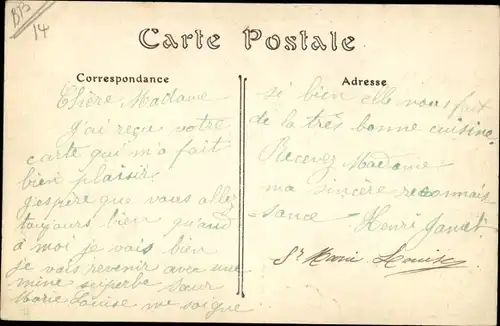 BPS
14
Carte Postale
Correspondance
Adresse
Chère Madame
J'ai reçu votre
carte qui m'a fait
bien plaisir.
j'espère que vous allez
toujours bien quand
à moi je vais bien
je vais revenir avec une
mine superbe sœur
Marie Louise me soigne
si bien elle vous fait
de la très bonne cuisine.
Recevez Madame
ma sincère reconnais-
sance
Henri Janet
Sr Marie Louise